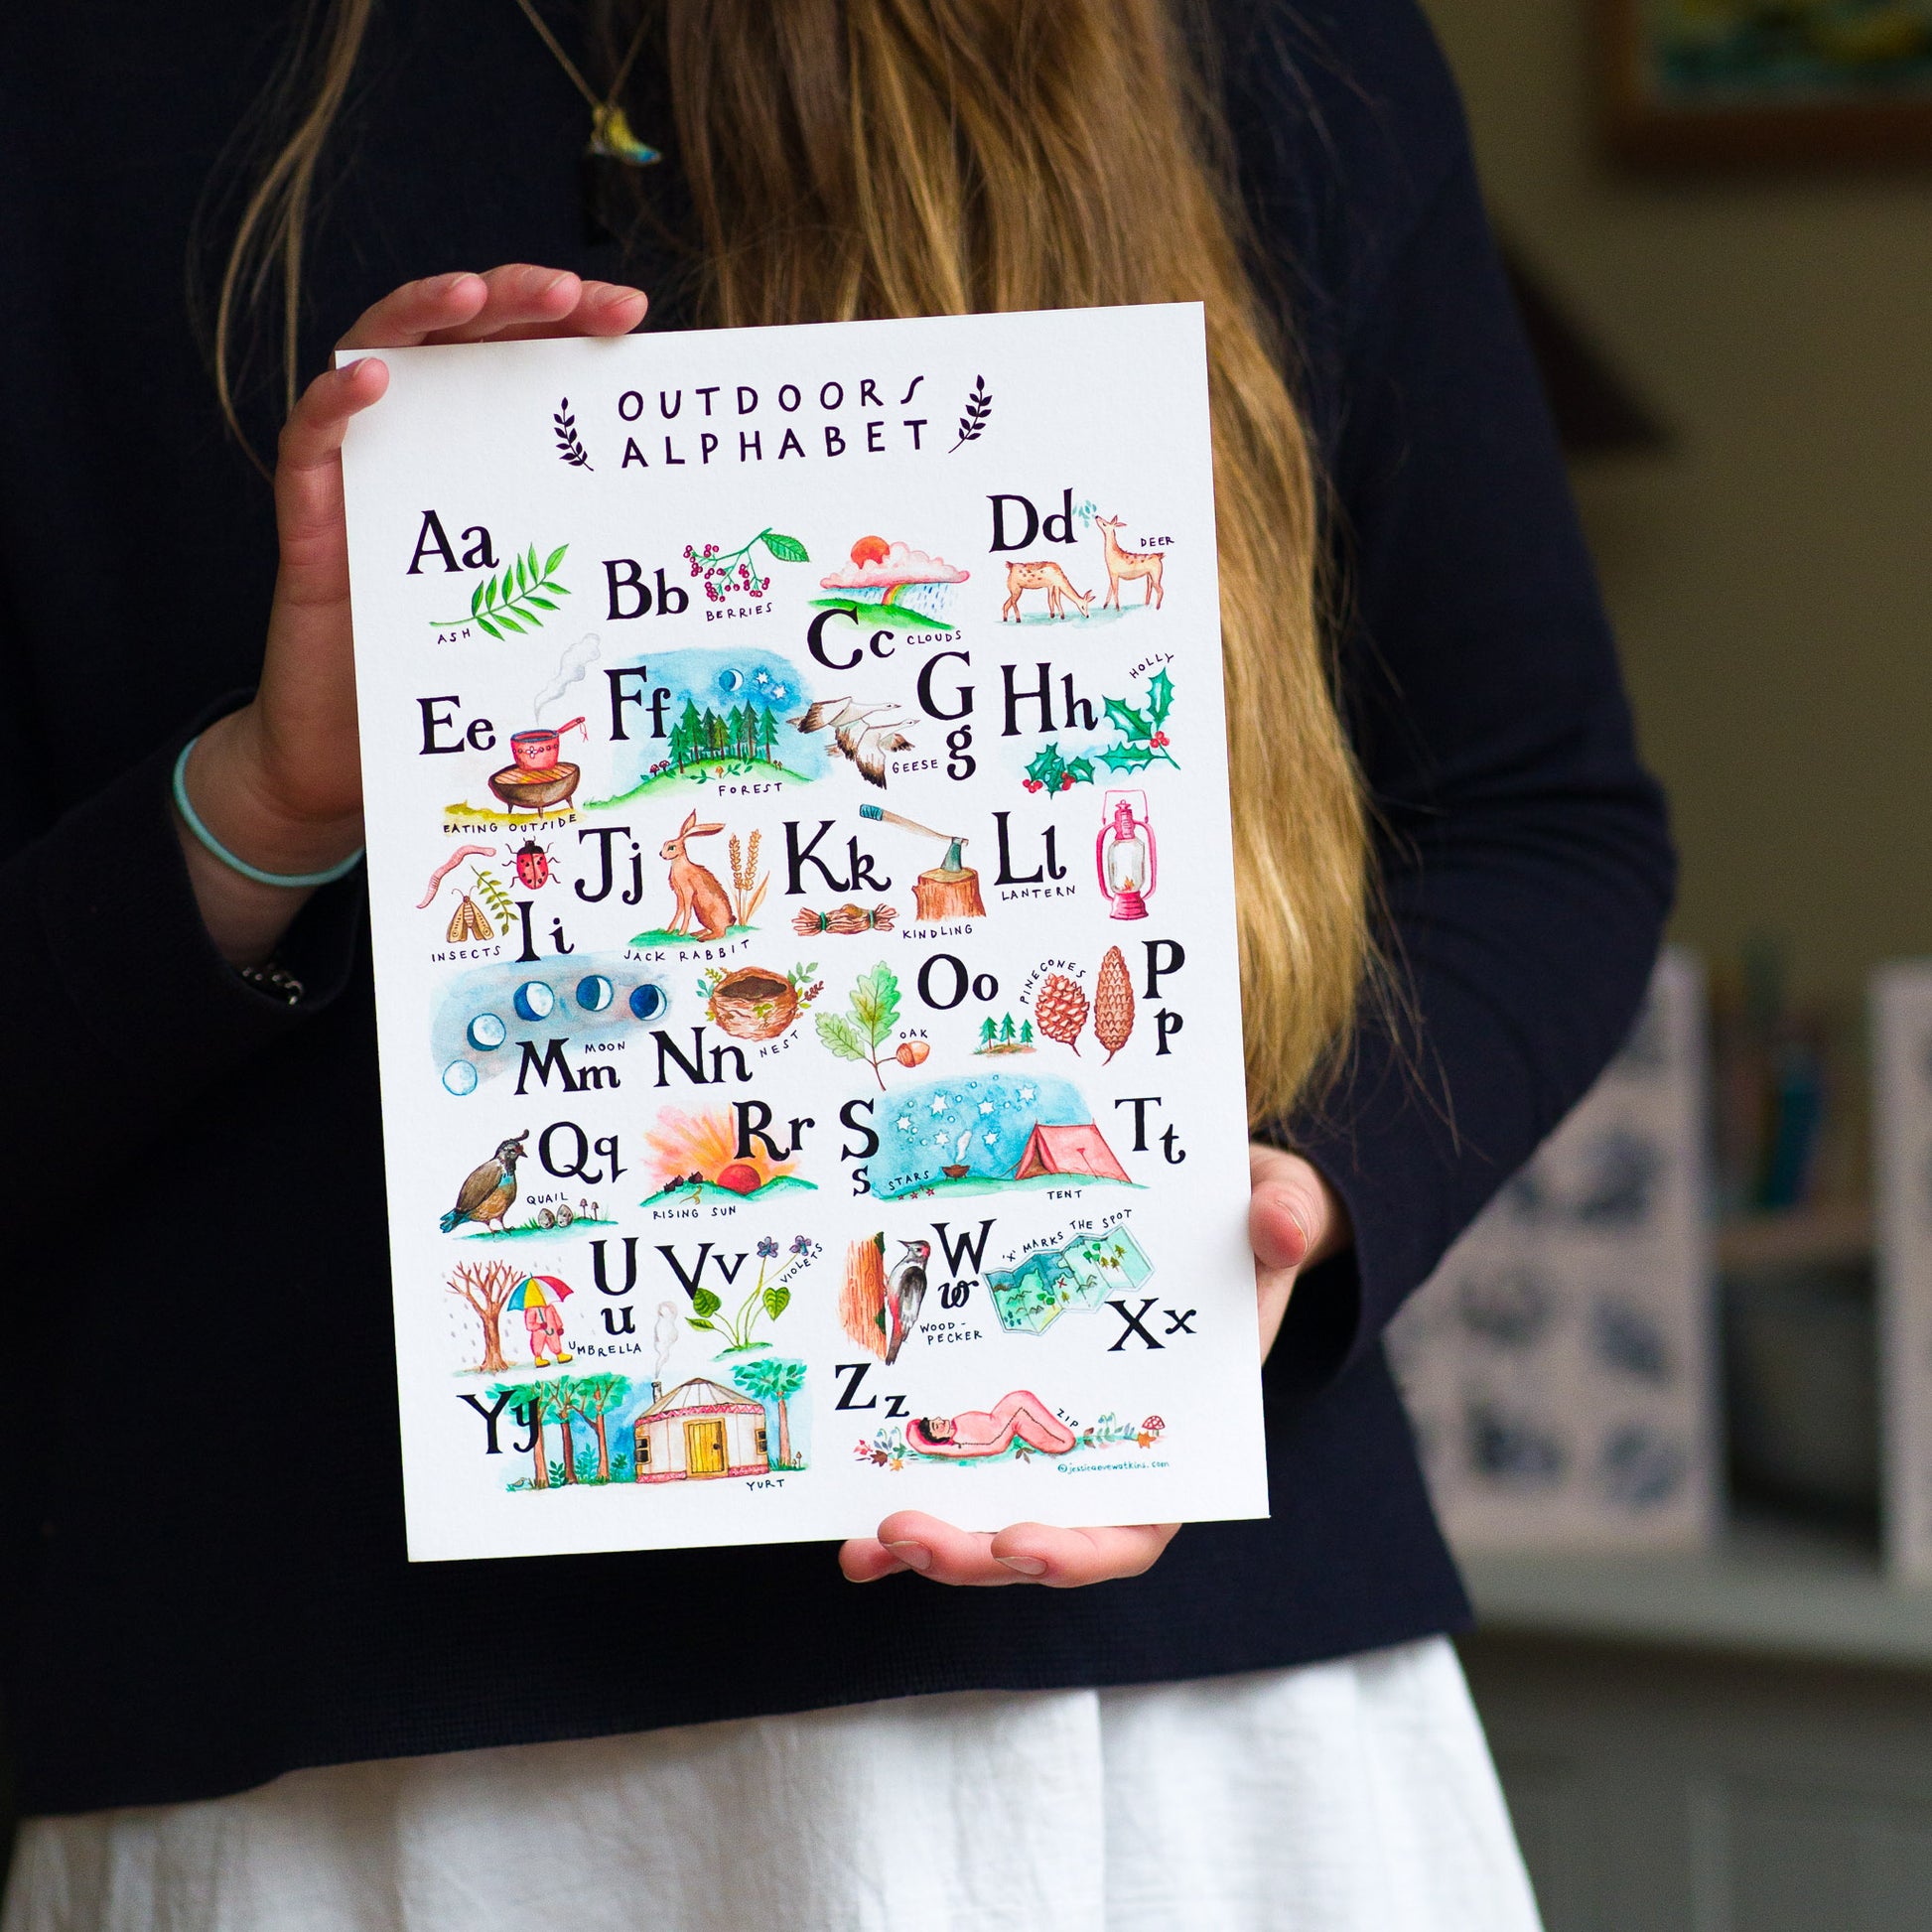 OUTDOORS
ALPHABET
Aa
ASH
Bb
BERRIES
Cc
CLOUDS
Dd
DEER
Ee
EATING OUTSIDE
Ff
FOREST
G
g
GEESE
Hh
HOLLY
Ii
INSECTS
Jj
JACK RABBIT
Kk
KINDLING
Ll
LANTERN
Mm
MOON
Nn
NEST
Oo
OAK
P
p
PINECONES
Qq
QUAIL
Rr
RISING SUN
S
s
STARS
Tt
TENT
U
u
UMBRELLA
Vv
VIOLETS
W
w
WOOD-
PECKER
'X' MARKS THE SPOT
Xx
Yy
YURT
Zz
ZIP
©jessicaevewatkins.com